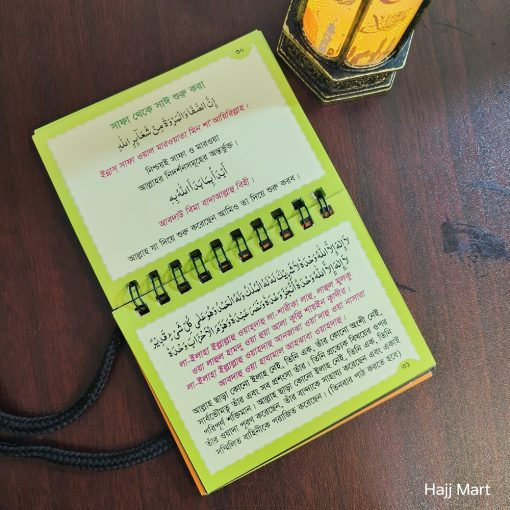 ৩০
সাফা থেকে সাঈ শুরু করা
إِنَّ الصَّفَا وَالْمَرْوَةَ مِنْ شَعَآئِرِ اللهِ
ইন্নাস সাফা ওয়াল মারওয়াতা মিন শা'আয়িরিল্লাহ।
নিশ্চয়ই সাফা ও মারওয়া
আল্লাহর নিদর্শনসমূহের অন্তর্ভুক্ত।
أَبْدَأُ بِمَا بَدَأَ اللهُ بِهِ
আবদাউ বিমা বাদাআল্লাহু বিহী।
আল্লাহ যা দিয়ে শুরু করেছেন আমিও তা দিয়ে শুরু করব।
لَا إِلٰهَ إِلَّا اللهُ وَحْدَهُ لَا شَرِيْكَ لَهُ لَهُ الْمُلْكُ وَلَهُ الْحَمْدُ وَهُوَ عَلٰى كُلِّ شَيْءٍ قَدِيْرٌ
لَا إِلٰهَ إِلَّا اللهُ وَحْدَهُ أَنْجَزَ وَعْدَهُ وَنَصَرَ عَبْدَهُ وَهَزَمَ الْأَحْزَابَ وَحْدَهُ
লা-ইলাহা ইল্লাল্লাহু ওয়াহদাহু লা-শারীকা লাহু, লাহুল মুলকু
ওয়া লাহুল হামদু ওয়া হুয়া আলা কুল্লি শাইইন কুদীর।
লা-ইলাহা ইল্লাল্লাহু ওয়াহদাহু আনজাঝা ওয়া'দাহু ওয়া নাসারা
আবদাহু ওয়া হাঝামাল আহঝাবা ওয়াহদাহু।
আল্লাহ ছাড়া কোনো ইলাহ নেই, তিনি এক, তাঁর কোনো অংশী নেই,
সার্বভৌমত্ব তাঁর এবং সব প্রশংসা তাঁর। তিনি প্রত্যেক বিষয়ের ওপর
পরিপূর্ণ শক্তিমান। আল্লাহ ছাড়া কোনো ইলাহ নেই, তিনি এক, তিনি
তাঁর ওয়াদা পূরণ করেছেন, তাঁর বান্দাকে সাহায্য করেছেন এবং একাই
সম্মিলিত বাহিনীকে পরাজিত করেছেন। (তিনবার পাঠ করতে হবে)
৩১
Hajj Mart